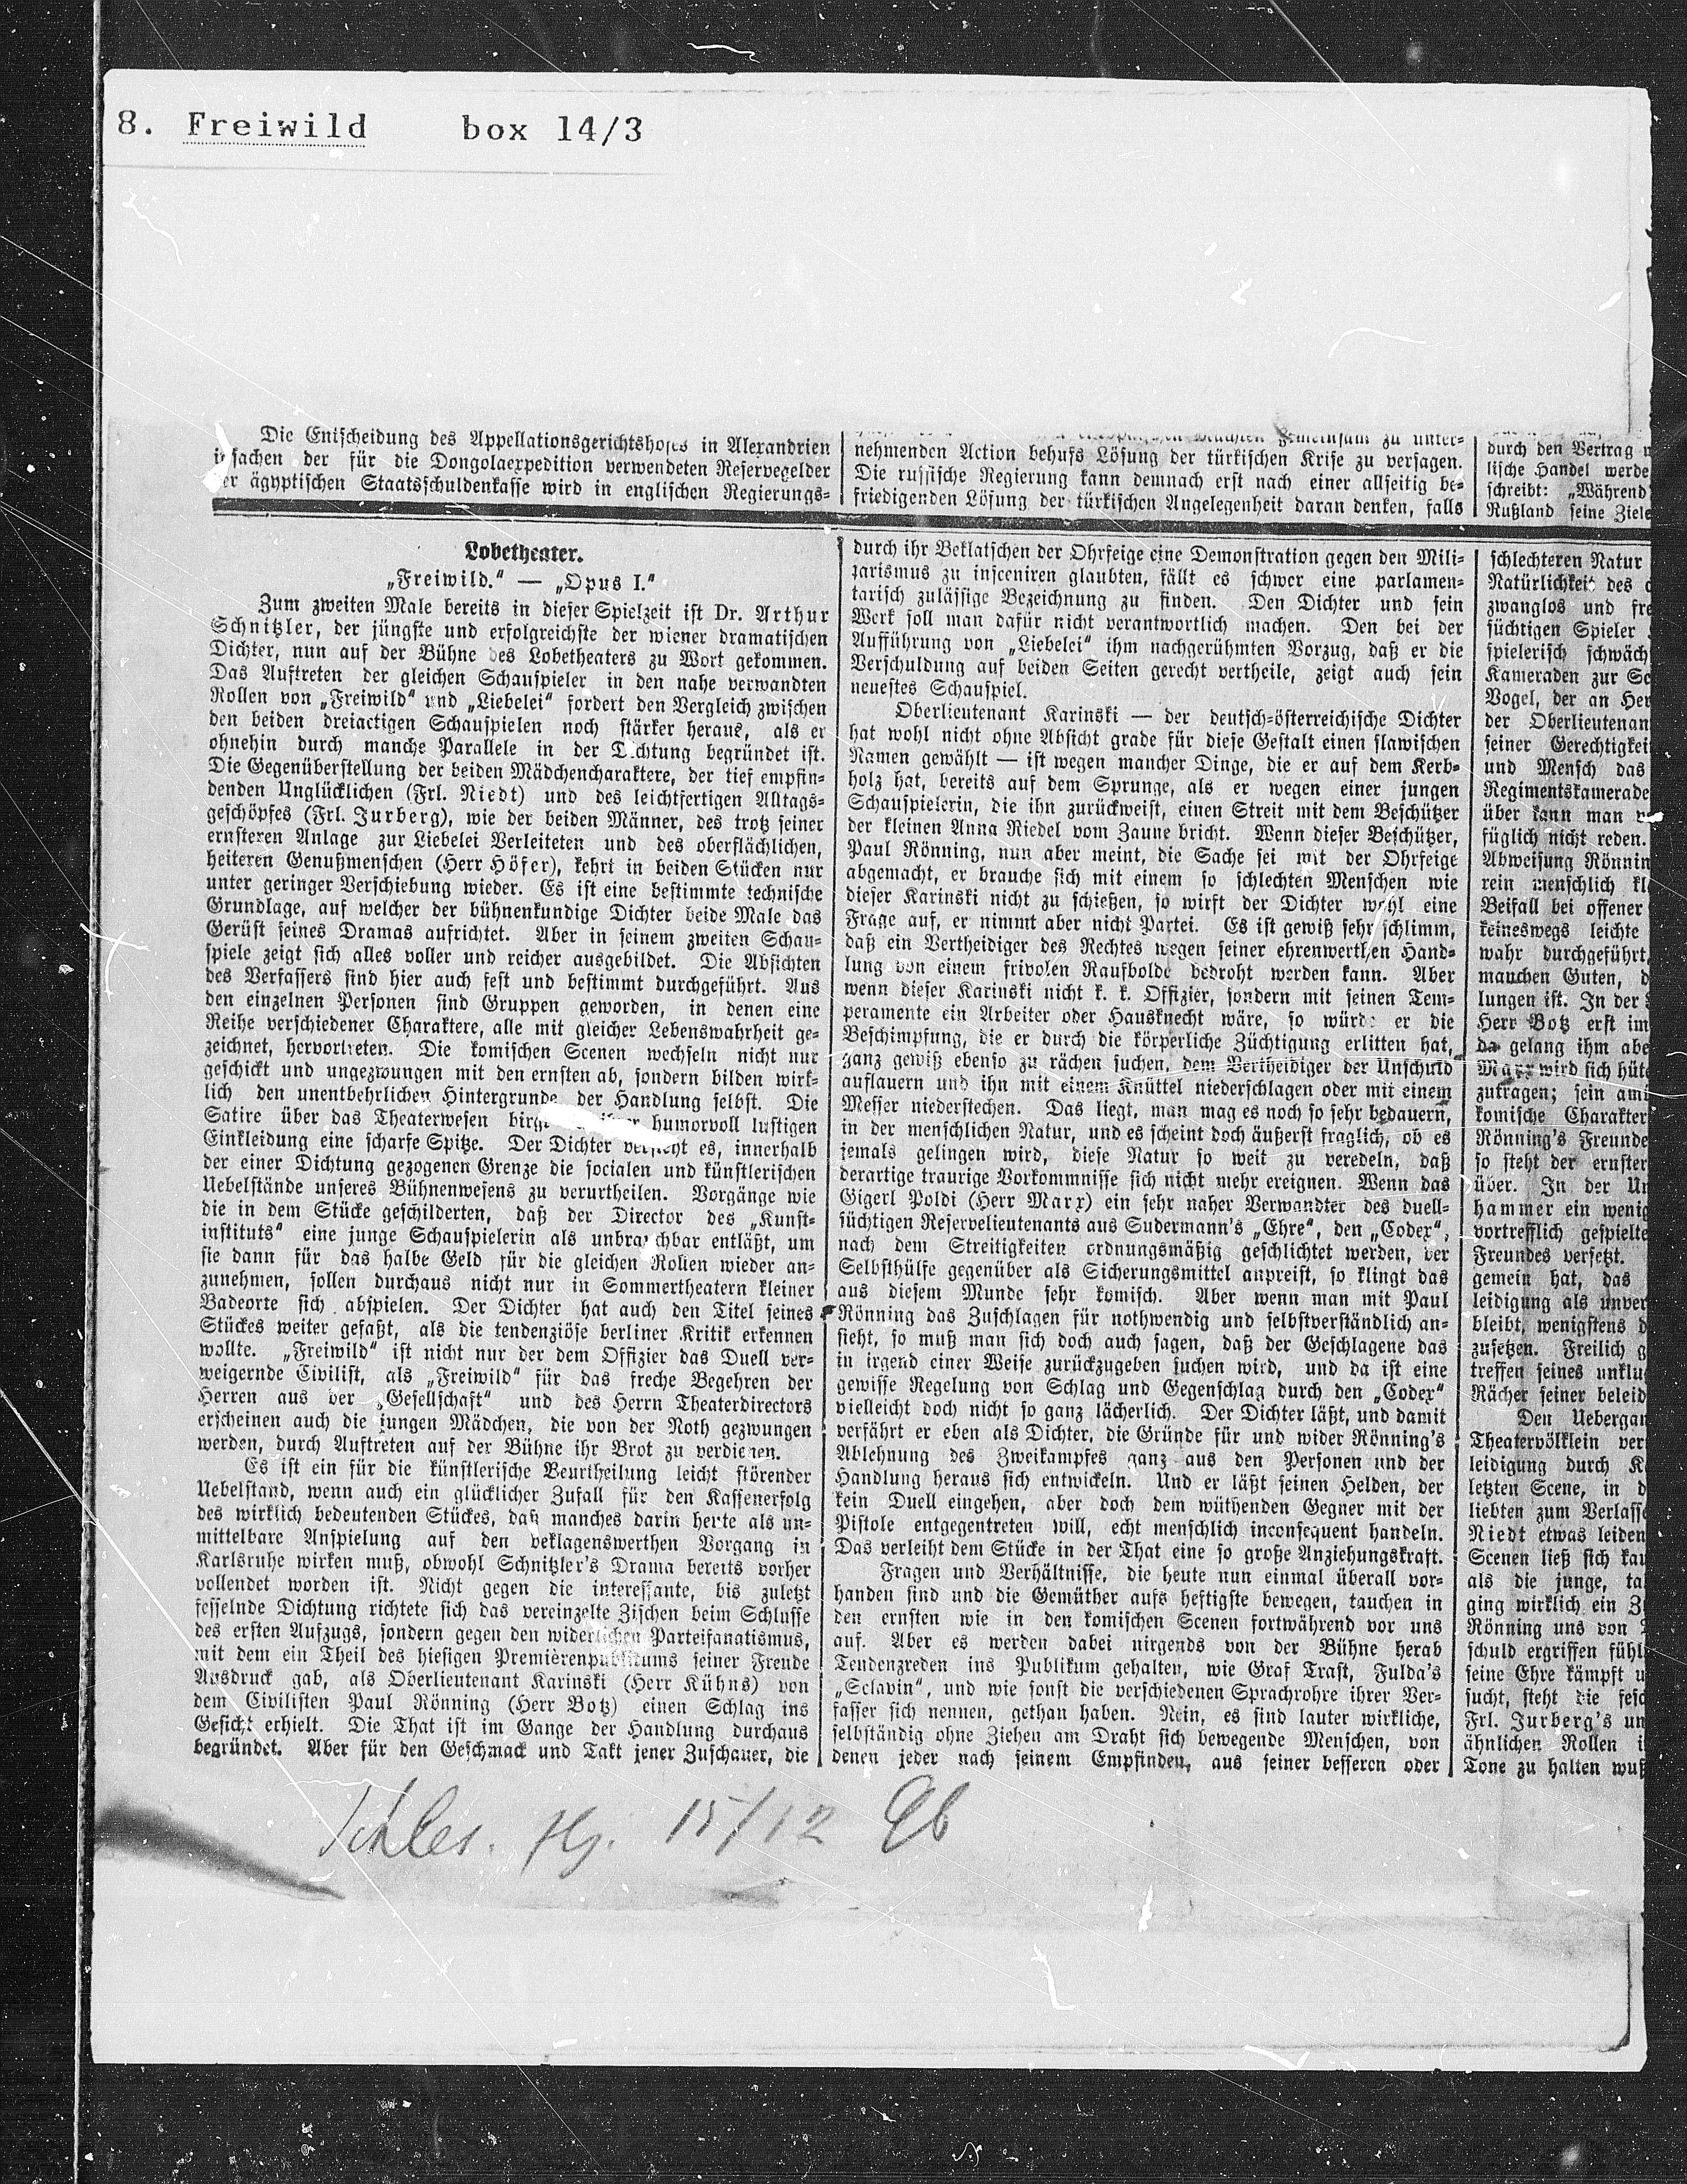 8. Freiwild box 14/3
Die Entscheidung des Appellationsgerichtshofes in Alexandrien
sachen der für die Dongolaexpedition verwendeten Reservegelder
er ägyptischen Staatsschuldenkasse wird in englischen Regierungs-
nehmenden Action behufs Lösung der türkischen Krise zu versagen.
Die russische Regierung kann demnach erst nach einer allseitig be-
friedigenden Lösung der türkischen Angelegenheit daran denken, falls
durch den Vertrag
lische Handel werde
schreibt: „Während
Rußland seine Ziele
Lobetheater.
„Freiwild.“ — „Opus I.“
Zum zweiten Male bereits in dieser Spielzeit ist Dr. Arthur
Schnitzler, der jüngste und erfolgreichste der wiener dramatischen
Dichter, nun auf der Bühne des Lobetheaters zu Wort gekommen.
Das Auftreten der gleichen Schauspieler in den nahe verwandten
Rollen von „Freiwild“ und „Liebelei“ fordert den Vergleich zwischen
den beiden dreiactigen Schauspielen noch stärker heraus, als er
ohnehin durch manche Parallele in der Dichtung begründet ist.
Die Gegenüberstellung der beiden Mädchencharaktere, der tief empfin-
denden Unglücklichen (Frl. Niedt) und des leichtfertigen Alltags-
geschöpfes (Frl. Jurberg), wie der beiden Männer, des trotz seiner
ernsteren Anlage zur Liebelei Verleiteten und des oberflächlichen,
heiteren Genußmenschen (Herr Höfer), kehrt in beiden Stücken nur
unter geringer Verschiebung wieder. Es ist eine bestimmte technische
Grundlage, auf welcher der bühnenkundige Dichter beide Male das
Gerüst seines Dramas aufrichtet. Aber in seinem zweiten Schau-
spiele zeigt sich alles voller und reicher ausgebildet. Die Absichten
des Verfassers sind hier auch fest und bestimmt durchgeführt. Aus
den einzelnen Personen sind Gruppen geworden, in denen eine
Reihe verschiedener Charaktere, alle mit gleicher Lebenswahrheit ge-
zeichnet, hervortreten. Die komischen Scenen wechseln nicht nur
geschickt und ungezwungen mit den ernsten ab, sondern bilden wirk-
lich den unentbehrlichen Hintergrund der Handlung selbst. Die
Satire über das Theaterwesen birgt humorvoll lustigen
Einkleidung eine scharfe Spitze. Der Dichter versteht es, innerhalb
der einer Dichtung gezogenen Grenze die socialen und künstlerischen
Uebelstände unseres Bühnenwesens zu verurtheilen. Vorgänge wie
die in dem Stücke geschilderten, daß der Director des „Kunst-
instituts“ eine junge Schauspielerin als unbrauchbar entläßt, um
sie dann für das halbe Geld für die gleichen Rollen wieder an-
zunehmen, sollen durchaus nicht nur in Sommertheatern kleiner
Badeorte sich abspielen. Der Dichter hat auch den Titel seines
Stückes weiter gefaßt, als die tendenziöse berliner Kritik erkennen
wollte. „Freiwild“ ist nicht nur der dem Offizier das Duell ver-
weigernde Civilist, als „Freiwild“ für das freche Begehren der
Herren aus der „Gesellschaft“ und des Herrn Theaterdirectors
erscheinen auch die jungen Mädchen, die von der Noth gezwungen
werden, durch Auftreten auf der Bühne ihr Brot zu verdienen.
Es ist ein für die künstlerische Beurtheilung leicht störender
Uebelstand, wenn auch ein glücklicher Zufall für den Kassenerfolg
des wirklich bedeutenden Stückes, daß manches darin heute als un-
mittelbare Anspielung auf den beklagenswerthen Vorgang in
Karlsruhe wirken muß, obwohl Schnitzler's Drama bereits vorher
vollendet worden ist. Nicht gegen die interessante, bis zuletzt
fesselnde Dichtung richtete sich das vereinzelte Zischen beim Schlusse
des ersten Aufzugs, sondern gegen den widerlichen Parteifanatismus,
mit dem ein Theil des hiesigen Premièrenpublikums seiner Freude
Ausdruck gab, als Oberlieutenant Karinski (Herr Kühns) von
dem Civilisten Paul Rönning (Herr Botz) einen Schlag ins
Gesicht erhielt. Die That ist im Gange der Handlung durchaus
begründet. Aber für den Geschmack und Takt jener Zuschauer, die
durch ihr Beklatschen der Ohrfeige eine Demonstration gegen den Mili-
tarismus zu insceniren glaubten, fällt es schwer eine parlamen-
tarisch zulässige Bezeichnung zu finden. Den Dichter und sein
Werk soll man dafür nicht verantwortlich machen. Den bei der
Aufführung von „Liebelei“ ihm nachgerühmten Vorzug, daß er die
Verschuldung auf beiden Seiten gerecht vertheile, zeigt auch sein
neuestes Schauspiel.
Oberlieutenant Karinski — der deutsch-österreichische Dichter
hat wohl nicht ohne Absicht grade für diese Gestalt einen slawischen
Namen gewählt — ist wegen mancher Dinge, die er auf dem Kerb-
holz hat, bereits auf dem Sprunge, als er wegen einer jungen
Schauspielerin, die ihn zurückweist, einen Streit mit dem Beschützer
der kleinen Anna Riedel vom Zaune bricht. Wenn dieser Beschützer,
Paul Rönning, nun aber meint, die Sache sei mit der Ohrfeige
abgemacht, er brauche sich mit einem so schlechten Menschen wie
dieser Karinski nicht zu schießen, so wirft der Dichter wohl eine
Frage auf, er nimmt aber nicht Partei. Es ist gewiß sehr schlimm,
daß ein Vertheidiger des Rechtes wegen seiner ehrenwerthen Hand-
lung von einem frivolen Raufbolde bedroht werden kann. Aber
wenn dieser Karinski nicht k. k. Offizier, sondern mit seinen Tem-
peramente ein Arbeiter oder Hausknecht wäre, so würde er die
Beschimpfung, die er durch die körperliche Züchtigung erlitten hat,
ganz gewiß ebenso zu rächen suchen, dem Vertheidiger der Unschuld
auflauern und ihn mit einem Knüttel niederschlagen oder mit einem
Messer niederstechen. Das liegt, man mag es noch so sehr bedauern,
in der menschlichen Natur, und es scheint doch äußerst fraglich, ob es
jemals gelingen wird, diese Natur so weit zu veredeln, daß
derartige traurige Vorkommnisse sich nicht mehr ereignen. Wenn das
Gigerl Poldi (Herr Marx) ein sehr naher Verwandter des duell-
süchtigen Reservelieutenants aus Sudermann's „Ehre“, den „Codex“,
nach dem Streitigkeiten ordnungsmäßig geschlichtet werden, der
Selbsthülfe gegenüber als Sicherungsmittel anpreist, so klingt das
aus diesem Munde sehr komisch. Aber wenn man mit Paul
Rönning das Zuschlagen für nothwendig und selbstverständlich an-
sieht, so muß man sich doch auch sagen, daß der Geschlagene das
in irgend einer Weise zurückzugeben suchen wird, und da ist eine
gewisse Regelung von Schlag und Gegenschlag durch den „Codex“
vielleicht doch nicht so ganz lächerlich. Der Dichter läßt, und damit
verfährt er eben als Dichter, die Gründe für und wider Rönning's
Ablehnung des Zweikampfes ganz aus den Personen und der
Handlung heraus sich entwickeln. Und er läßt seinen Helden, der
kein Duell eingehen, aber doch dem wüthenden Gegner mit der
Pistole entgegentreten will, echt menschlich inconsequent handeln.
Das verleiht dem Stücke in der That eine so große Anziehungskraft.
Fragen und Verhältnisse, die heute nun einmal überall vor-
handen sind und die Gemüther aufs heftigste bewegen, tauchen in
den ernsten wie in den komischen Scenen fortwährend vor uns
auf. Aber es werden dabei nirgends von der Bühne herab
Tendenzreden ins Publikum gehalten, wie Graf Trast, Fulda's
„Sclavin“, und wie sonst die verschiedenen Sprachrohre ihrer Ver-
fasser sich nennen, gethan haben. Nein, es sind lauter wirkliche,
selbständig ohne Ziehen am Draht sich bewegende Menschen, von
denen jeder nach seinem Empfinden, aus seiner besseren oder
schlechteren Natur
Natürlichkeit des
zwanglos und fre
süchtigen Spieler
spielerisch schwäch
Kameraden zur Sc
Vogel, der an Her
der Oberlieutenan
seiner Gerechtigkei
und Mensch das
Regimentskamerade
über kann man
füglich nicht reden.
Abweisung Rönnin
rein menschlich kl
Beifall bei offener
keineswegs leichte
wahr durchgeführt,
manchen Guten, d
lungen ist. In der
Herr Botz erst im
da gelang ihm abe
Marx wird sich hüt
zutragen; sein am
komische Charakter
Rönning's Freunde
so steht der ernster
über. In der Un
hammer ein wenig
vortrefflich gespielte
Freundes versetzt.
gemein hat, das
leidigung als unver
bleibt, wenigstens d
zusetzen. Freilich g
treffen seines unklu
Rächer seiner beleid
Den Uebergan
Theatervölklein ver
leidigung durch K
letzten Scene, in d
liebten zum Verlass
Niedt etwas leiden
Scenen ließ sich kau
als die junge, ta
ging wirklich ein Z
Rönning uns von
schuld ergriffen fühl
seine Ehre kämpft u
sucht, steht die fesc
Frl. Jurberg's un
ähnlichen Rollen i
Tone zu halten wuß
Schles. Ztg. 15/12 96